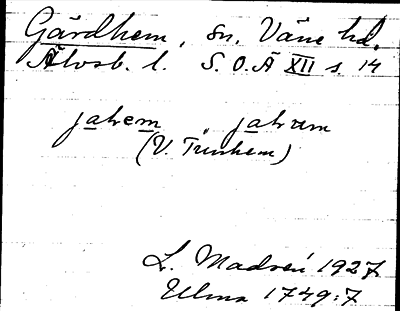 Gärdhem, sn. Väne hd.
Älvsb. l. S.O.Ä XII s. 14
jaħem jaħrum
(V. Tunhem)
L. Madsén 1927
Ulma 1749:7